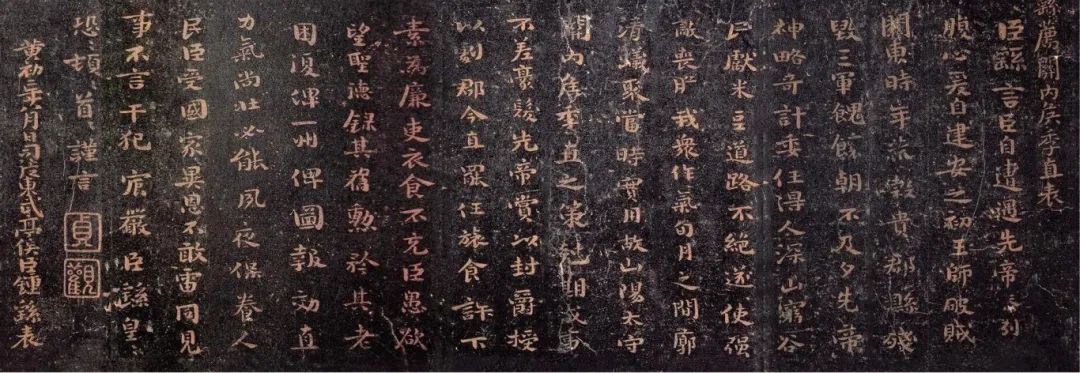 繇薦關內侯季直表
臣繇言臣自遭遇先帝忝列
腹心爰自建安之初王師破賊
關東時年荒穀貴郡縣殘
毀三軍餽饟朝不及夕先帝
神略奇計委任得人深山窮谷
民獻米豆道路不絕遂使強
敵喪膽我衆作氣旬月之間廓
清蟻聚當時實用故山陽太守
關內侯季直之策剋期成事
不差豪髮先帝賞以封爵授
以劇郡今直罷任旅食許下
素爲廉吏衣食不充臣愚欲
望聖德錄其舊勳矜其老
困復俾一州俾圖報効直
力氣尚壯必能夙夜保養人
民臣受國家異恩不敢雷同見
事不言干犯宸嚴臣繇皇〻
恐〻頓首〻謹言
貞觀
黃初二年八月日司徒東武亭侯臣鍾繇表